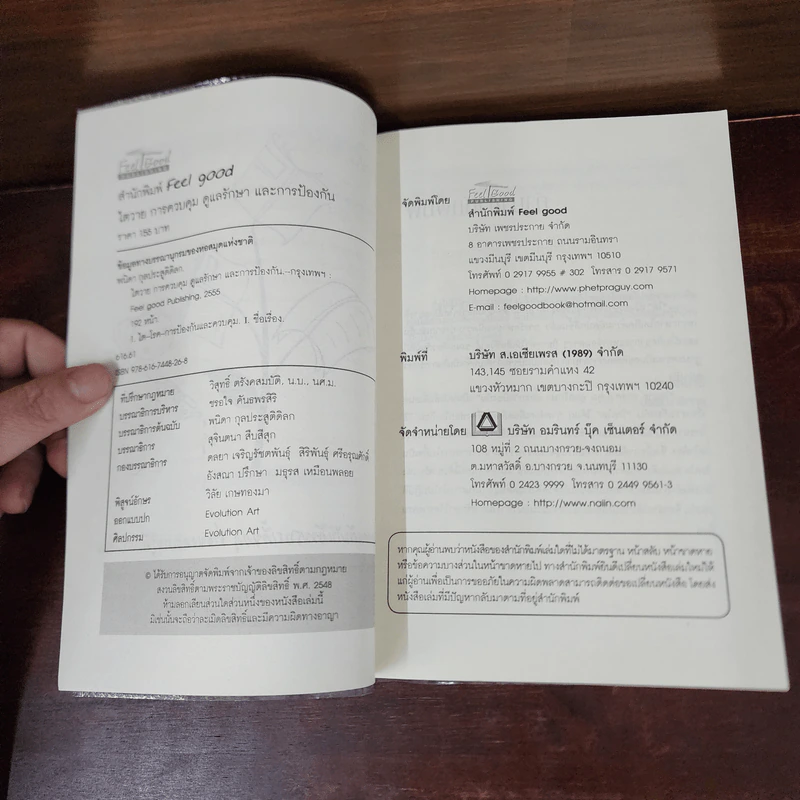 Feel Good
PUBLISHING
สำนักพิมพ์ Feel good
ไตวาย การควบคุม ดูแลรักษา และการป้องกัน
ราคา 158 บาท
ข้อมูลทางบรรณานุกรมของหอสมุดแห่งชาติ
พนิดา กุลประสูติดิลก.
ไตวาย การควบคุม ดูแลรักษา และการป้องกัน.--กรุงเทพฯ :
Feel good Publishing, 2555
192 หน้า.
1. ไต--โรค--การป้องกันและควบคุม. I. ชื่อเรื่อง.
616.61
ISBN 978-616-7448-26-8
ที่ปรึกษากฎหมาย วิสุทธิ์ ตรังคสมบัติ, น.บ., นศ.ม.
บรรณาธิการบริหาร ชรอใจ คันธอพรสิริ
บรรณาธิการต้นฉบับ พนิดา กุลประสูติดิลก
บรรณาธิการ สุจินตนา สืบสีสุก
กองบรรณาธิการ ดลยา เจริญรัชตพันธุ์ สิริพันธุ์ ศรีอรุณศักดิ์
อังสณา ปรึกษา มธุรส เหมือนพลอย
พิสูจน์อักษร วิลัย เกษทองมา
ออกแบบปก Evolution Art
ศิลปกรรม Evolution Art
© ได้รับการอนุญาตจัดพิมพ์จากเจ้าของลิขสิทธิ์ตามกฎหมาย
สงวนลิขสิทธิ์ตามพระราชบัญญัติลิขสิทธิ์ พ.ศ. 2548
ห้ามลอกเลียนส่วนใดส่วนหนึ่งของหนังสือเล่มนี้
มิเช่นนั้นจะถือว่าละเมิดลิขสิทธิ์และมีความผิดทางอาญา
Feel Good
PUBLISHING
จัดพิมพ์โดย สำนักพิมพ์ Feel good
บริษัท เพชรประกาย จำกัด
8 อาคารเพชรประกาย ถนนรามอินทรา
แขวงมีนบุรี เขตมีนบุรี กรุงเทพฯ 10510
โทรศัพท์ 0 2917 9955 # 302 โทรสาร 0 2917 9571
Homepage : http://www.phetpraguy.com
E-mail : feelgoodbook@hotmail.com
พิมพ์ที่ บริษัท ส.เอเซียเพรส (1989) จำกัด
143,145 ซอยรามคำแหง 42
แขวงหัวหมาก เขตบางกะปิ กรุงเทพฯ 10240
จัดจำหน่ายโดย บริษัท อมรินทร์ บุ๊ค เซ็นเตอร์ จำกัด
108 หมู่ที่ 2 ถนนบางกรวย-จงถนอม
ต.มหาสวัสดิ์ อ.บางกรวย จ.นนทบุรี 11130
โทรศัพท์ 0 2423 9999 โทรสาร 0 2449 9561-3
Homepage : http://www.naiin.com
หากคุณผู้อ่านพบว่าหนังสือของสำนักพิมพ์เล่มใดที่ไม่ได้มาตรฐาน หน้าสลับ หน้าขาดหาย
หรือข้อความบางส่วนในหน้าขาดหายไป ทางสำนักพิมพ์ยินดีเปลี่ยนหนังสือเล่มใหม่ให้
แก่ผู้อ่านเพื่อเป็นการขออภัยในความผิดพลาดสามารถติดต่อขอเปลี่ยนหนังสือ โดยส่ง
หนังสือเล่มที่มีปัญหากลับมาตามที่อยู่สำนักพิมพ์